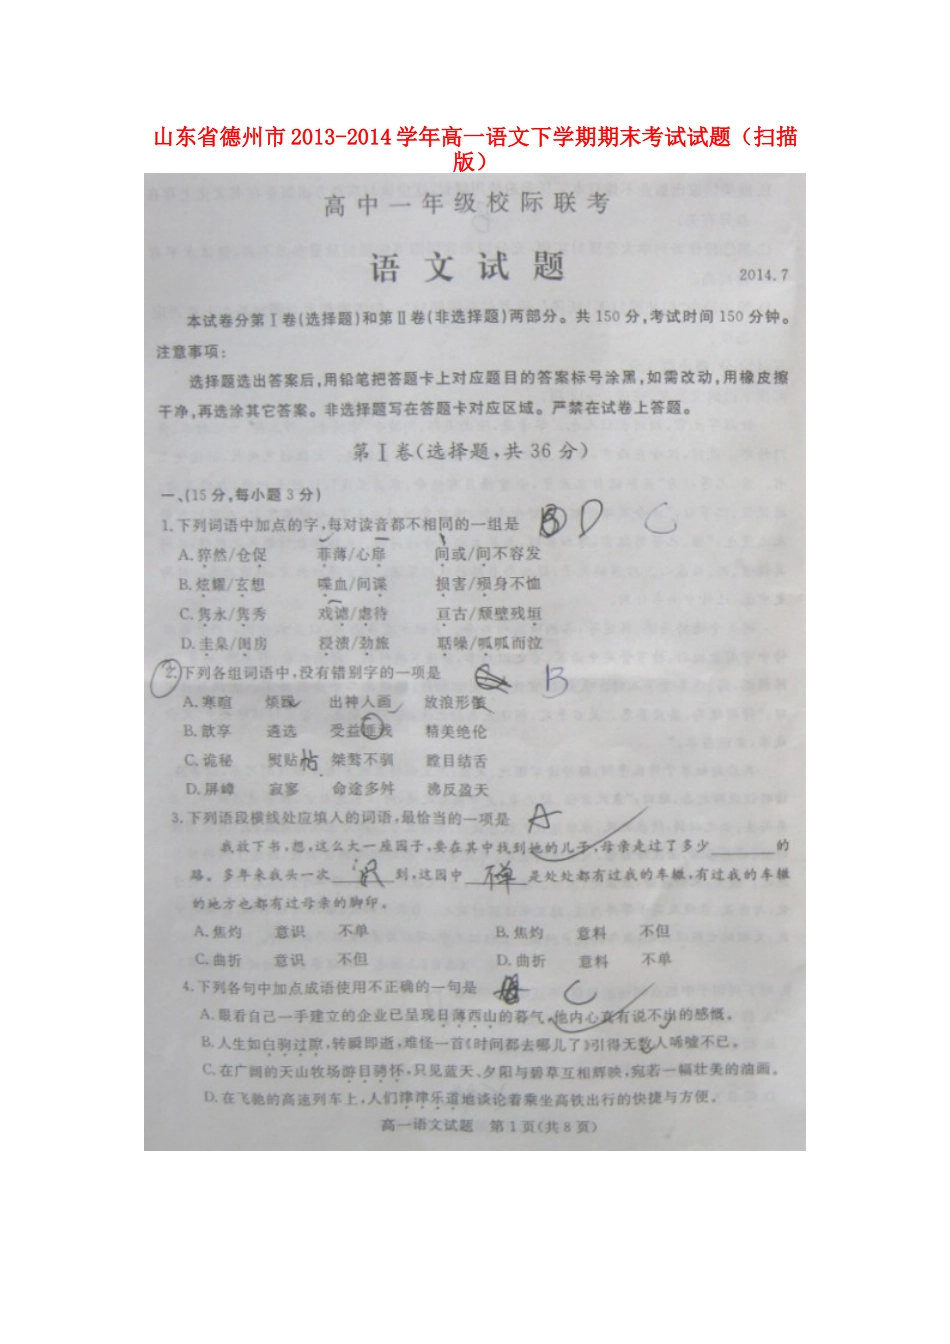 山东省德州市 2013-2014 学年高一语文下学期期末考试试题（扫描
版）
高中一年级校际联考
语文试题
2014.7
本试卷分第Ⅰ卷(选择题)和第Ⅱ卷(非选择题)两部分。共150分,考试时间150分钟。
注意事项:
选择题选出答案后,用铅笔把答题卡上对应题目的答案标号涂黑,如需改动,用橡皮擦
干净,再选涂其它答案。非选择题写在答题卡对应区域。严禁在试卷上答题。
第Ⅰ卷(选择题,共36分)
一、(15分,每小题3分)
1.下列词语中加点的字,每对读音都不相同的一组是 B D C
A.猝然/仓促 菲薄/心扉 间或/间不容发
B.炫耀/玄想 喋血/间谍 损害/殒身不恤
C.隽永/隽秀 戏谑/虐待 亘古/颓壁残垣
D.圭臬/闺房 浸渍/劲旅 聒噪/呱呱而泣
2.下列各组词语中,没有错别字的一项是 B
A.寒暄 烦躁 出神入画 放浪形骸
B.歆享 遴选 受益匪浅 精美绝伦
C.诡秘 熨贴 帖 桀骜不驯 瞠目结舌
D.屏嶂 寂寥 命途多舛 沸反盈天
3.下列语段横线处应填入的词语,最恰当的一项是 A
我放下书,想,这么大一座园子,要在其中找到她的儿子,母亲走过了多少______的
路。多年来我头一次 识 到,这园中 单 是处处都有过我的车辙,有过我的车辙
的地方也都有过母亲的脚印。
A.焦灼 意识 不单 B.焦灼 意料 不但
C.曲折 意识 不但 D.曲折 意料 不单
4.下列各句中加点成语使用不正确的一句是 C
A.眼看自己一手建立的企业已呈现日薄西山的暮气,他内心真有说不出的感慨。
B.人生如白驹过隙,转瞬即逝,难怪一首《时间都去哪儿了》引得无数人唏嘘不已。
C.在广阔的天山牧场游目骋怀,只见蓝天、夕阳与碧草互相辉映,宛若一幅壮美的油画。
D.在飞驰的高速列车上,人们津津乐道地谈论着乘坐高铁出行的快捷与方便。
高一语文试题 第1页(共8页)